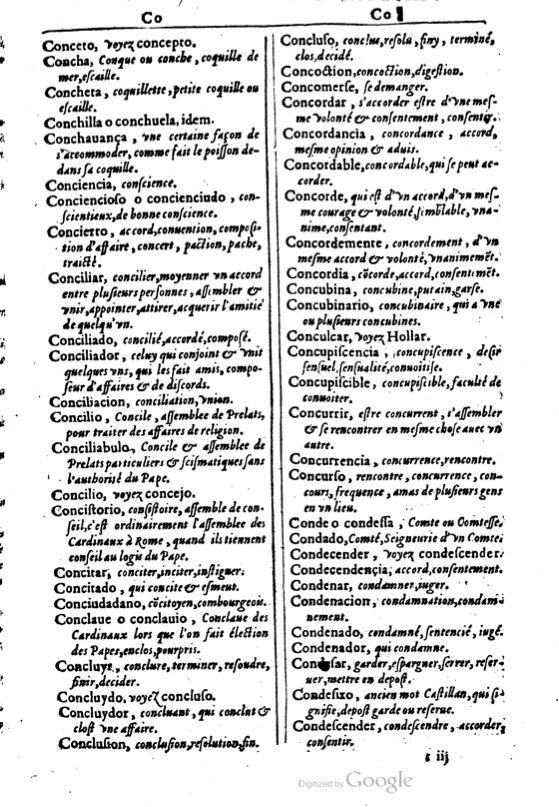 Co
Conceto, voyez concepto.
Concha, Conque ou conche, coquille de
mer, escaille.
Concheta, coquillette, petite coquille ou
escaille.
Conchilla o conchuela, idem.
Conchauança, vne certaine façon de
s'accommoder, comme fait le poisson de-
dans sa coquille.
Conciencia, conscience.
Conciencioso o concienciudo, con-
scientieux, de bonne conscience.
Concierto, accord, conuention, composi-
tion d'affaire, concert, paction, pache,
traicté.
Conciliar, concilier, moyenner vn accord
entre plusieurs personnes, assembler &
vnir, appointer, attirer, acquerir l'amitié
de quelqu'vn.
Conciliado, concilié, accordé, composé.
Conciliador, celuy qui conjoint & vnit
quelques vns, qui les fait amis, compo-
seur d'affaires & de discords.
Conciliacion, conciliation, vnion.
Concilio, Concile, assemblee de Prelats,
pour traiter des affaires de religion.
Conciliabulo, Concile & assemblee de
Prelats particuliers & scismatiques sans
l'authorité du Pape.
Concilio, voyez concejo.
Conciſtorio, consistoire, assemblee de con-
seil, c'est ordinairement l'assemblee des
Cardinaux à Rome, quand ils tiennent
conseil au logis du Pape.
Concitar, conciter, inciter, instiguer.
Concitado, qui concite & esmeut.
Conciudadano, cōcitoyen, combourgeois.
Conclaue o conclauio, Conclaue des
Cardinaux lors que l'on fait élection
des Papes, enclos, pourpris.
Concluyr, conclure, terminer, resoudre,
finir, decider.
Concluydo, voyez concluso.
Concluydor, concluant, qui conclut &
clost vne affaire.
Conclusion, conclusion, resolution, fin.
Co
Concluso, conclus, resolu, finy, terminé,
clos, decidé.
Concoction, concoction, digestion.
Concomerse, se demanger.
Concordar, s'accorder estre d'vne mes-
me volonté & consentement, consentir.
Concordancia, concordance, accord,
mesme opinion & aduis.
Concordable, concordable, qui se peut ac-
corder.
Concorde, qui est d'vn accord, d'vn mes-
me courage & volonté, semblable, vna-
nime, consentant.
Concordemente, concordement, d'vn
mesme accord & volonté, vnanimemēt.
Concordia, cōcorde, accord, consentimēt.
Concubina, concubine, putain, garse.
Concubinario, concubinaire, qui a vne
ou plusieurs concubines.
Conculcar, voyez Hollar.
Concupiscencia, concupiscence, desir
sensuel, sensualité, conuoitise.
Concupiscible, concupiscible, faculté de
conuoiter.
Concurrir, estre concurrent, s'assembler
& se rencontrer en mesme chose auec vn
autre.
Concurrencia, concurrence, rencontre.
Concurso, rencontre, concurrence, con-
cours, frequence, amas de plusieurs gens
en vn lieu.
Conde o condessa, Comte ou Comtesse.
Condado, Comté, Seigneurie d'vn Comte.
Condecender, voyez condescender.
Condecendencia, accord, consentement.
Condenar, condamner, iuger.
Condenacion, condamnation, condam-
nement.
Condenado, condamné, sentencié, iugé.
Condenador, qui condamne.
garder, espargner, serrer, reser-
uer, mettre en depost.
Condesixo, ancien mot Castillan, qui si-
gnifie, depost garde ou reserue.
Condescender, condescendre, accorder,
consentir.
iij
Digitized by Google